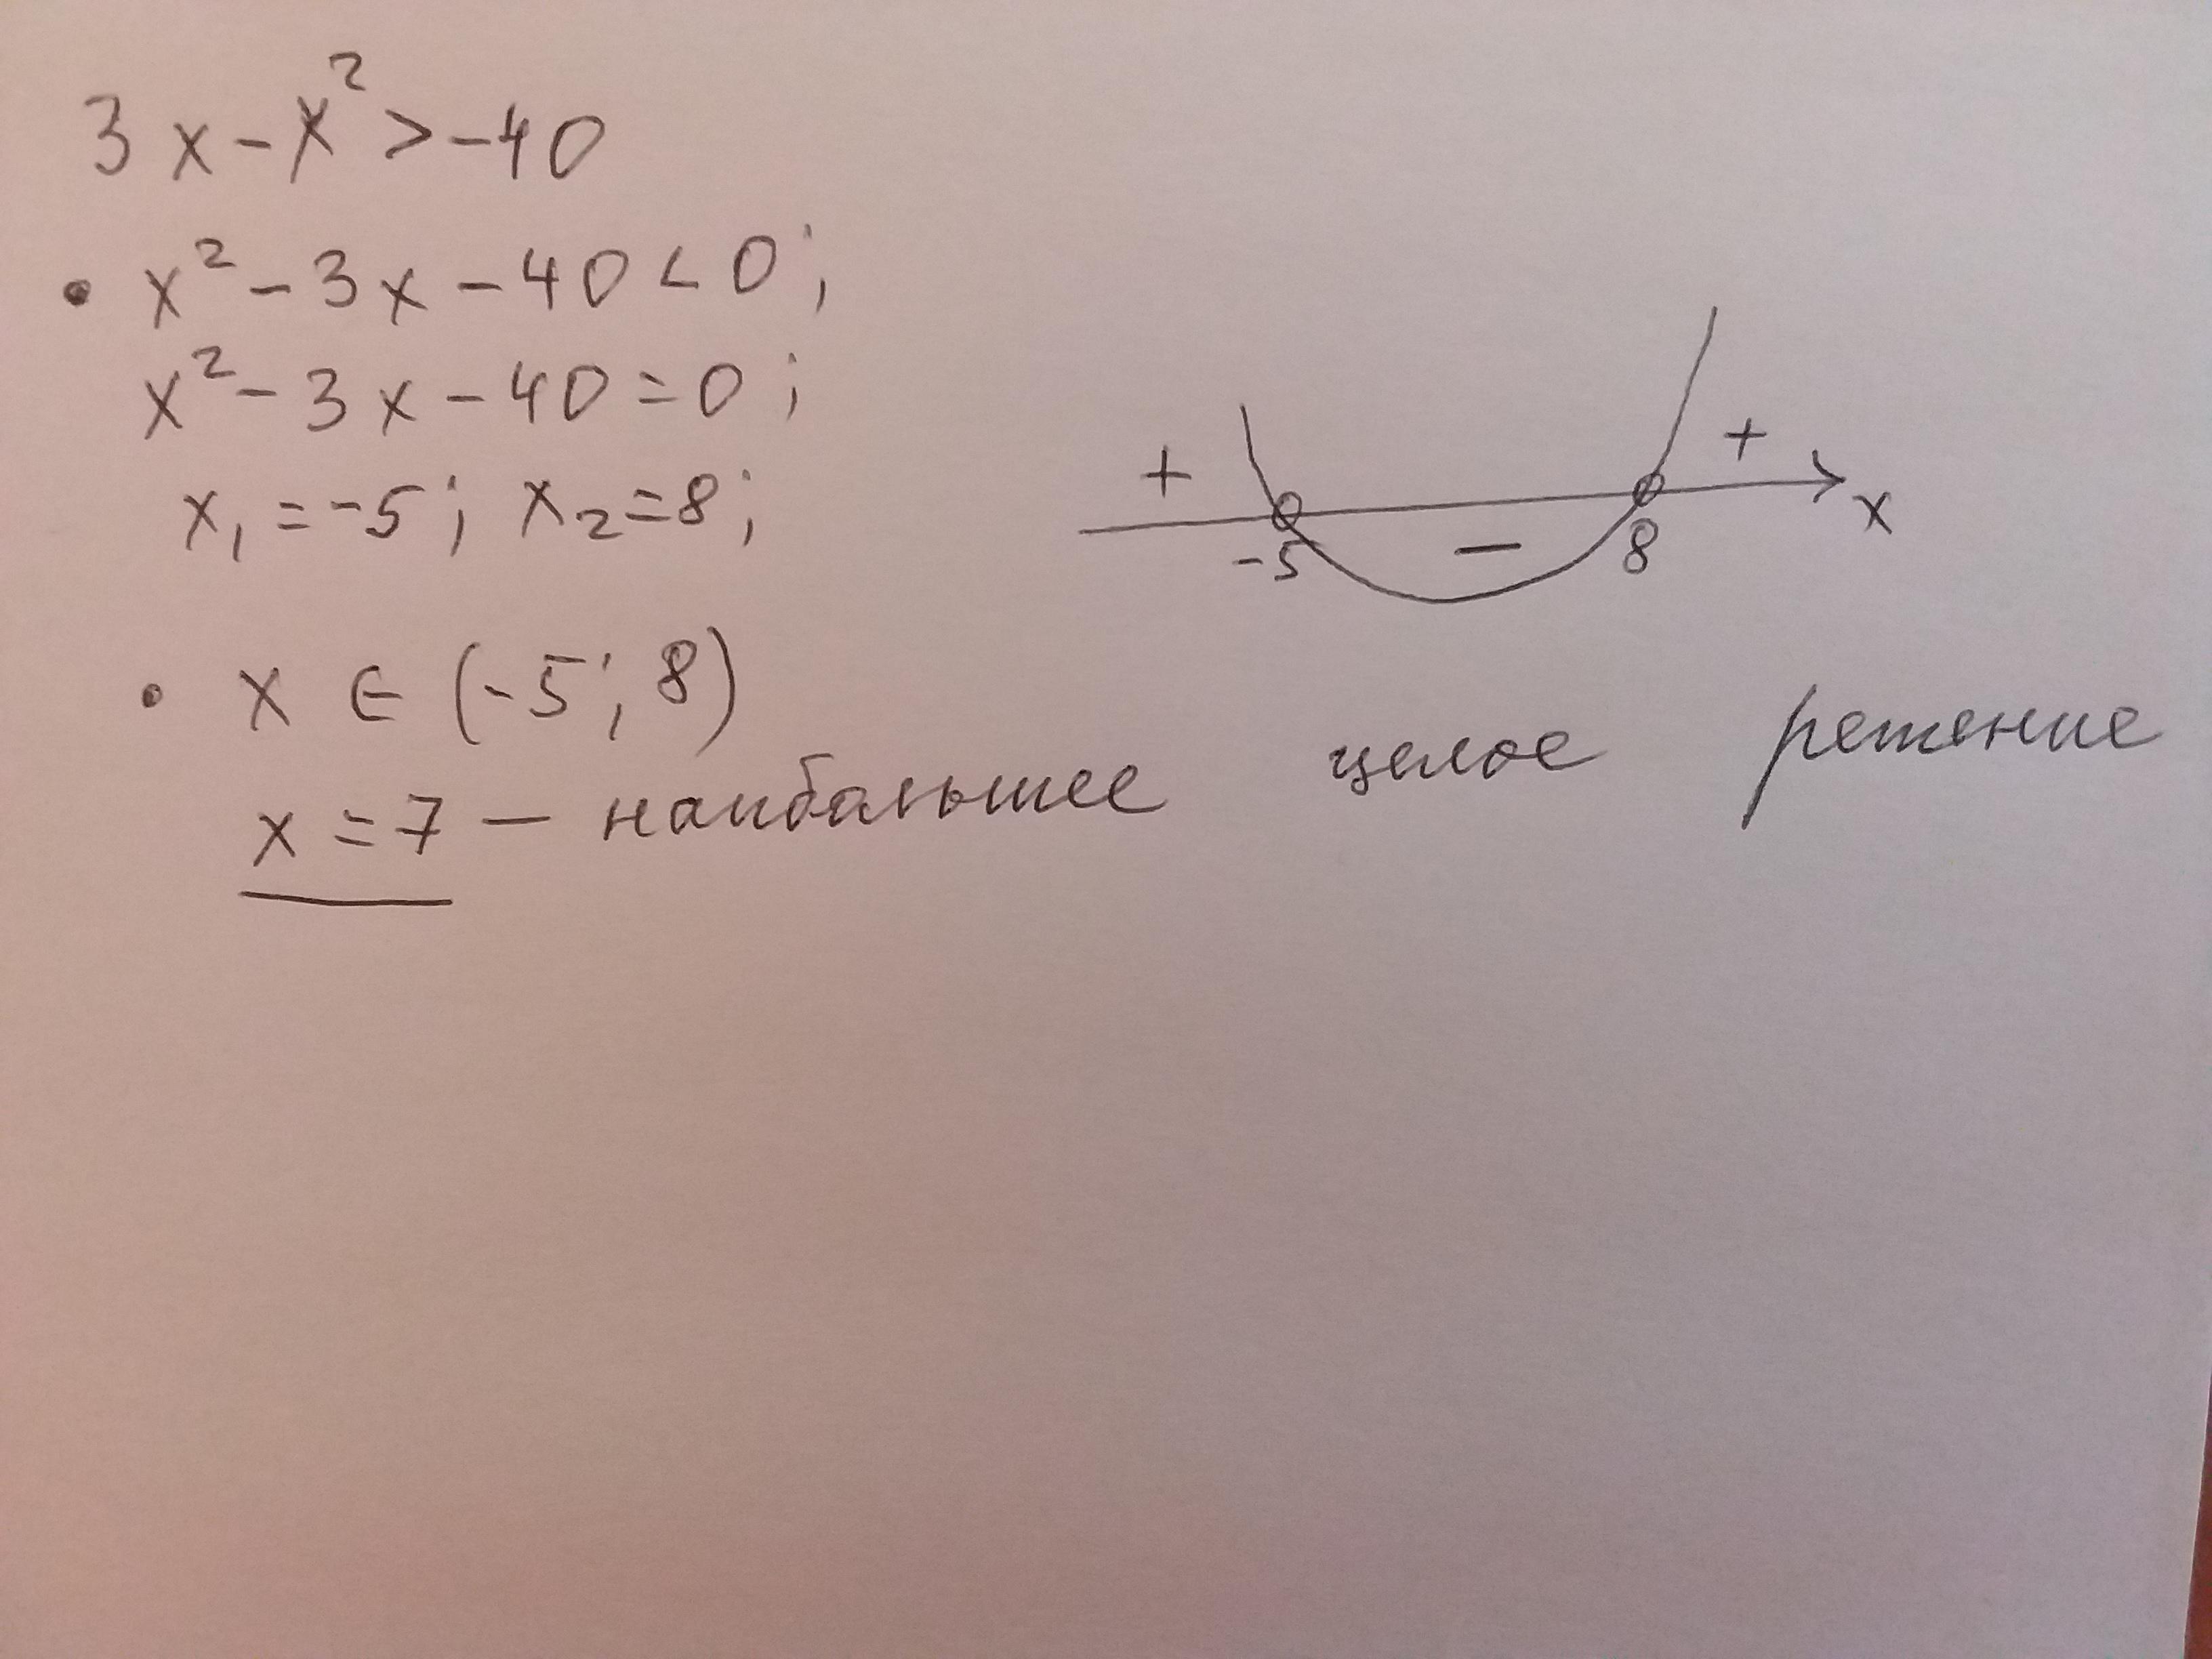 3x-x²>-40
• x²-3x-40<0;
x²-3x-40=0;
x₁=-5; x₂=8;
+ - + x
-5 8
• x ∈ (-5; 8)
x=7 — наибольшее целое решение